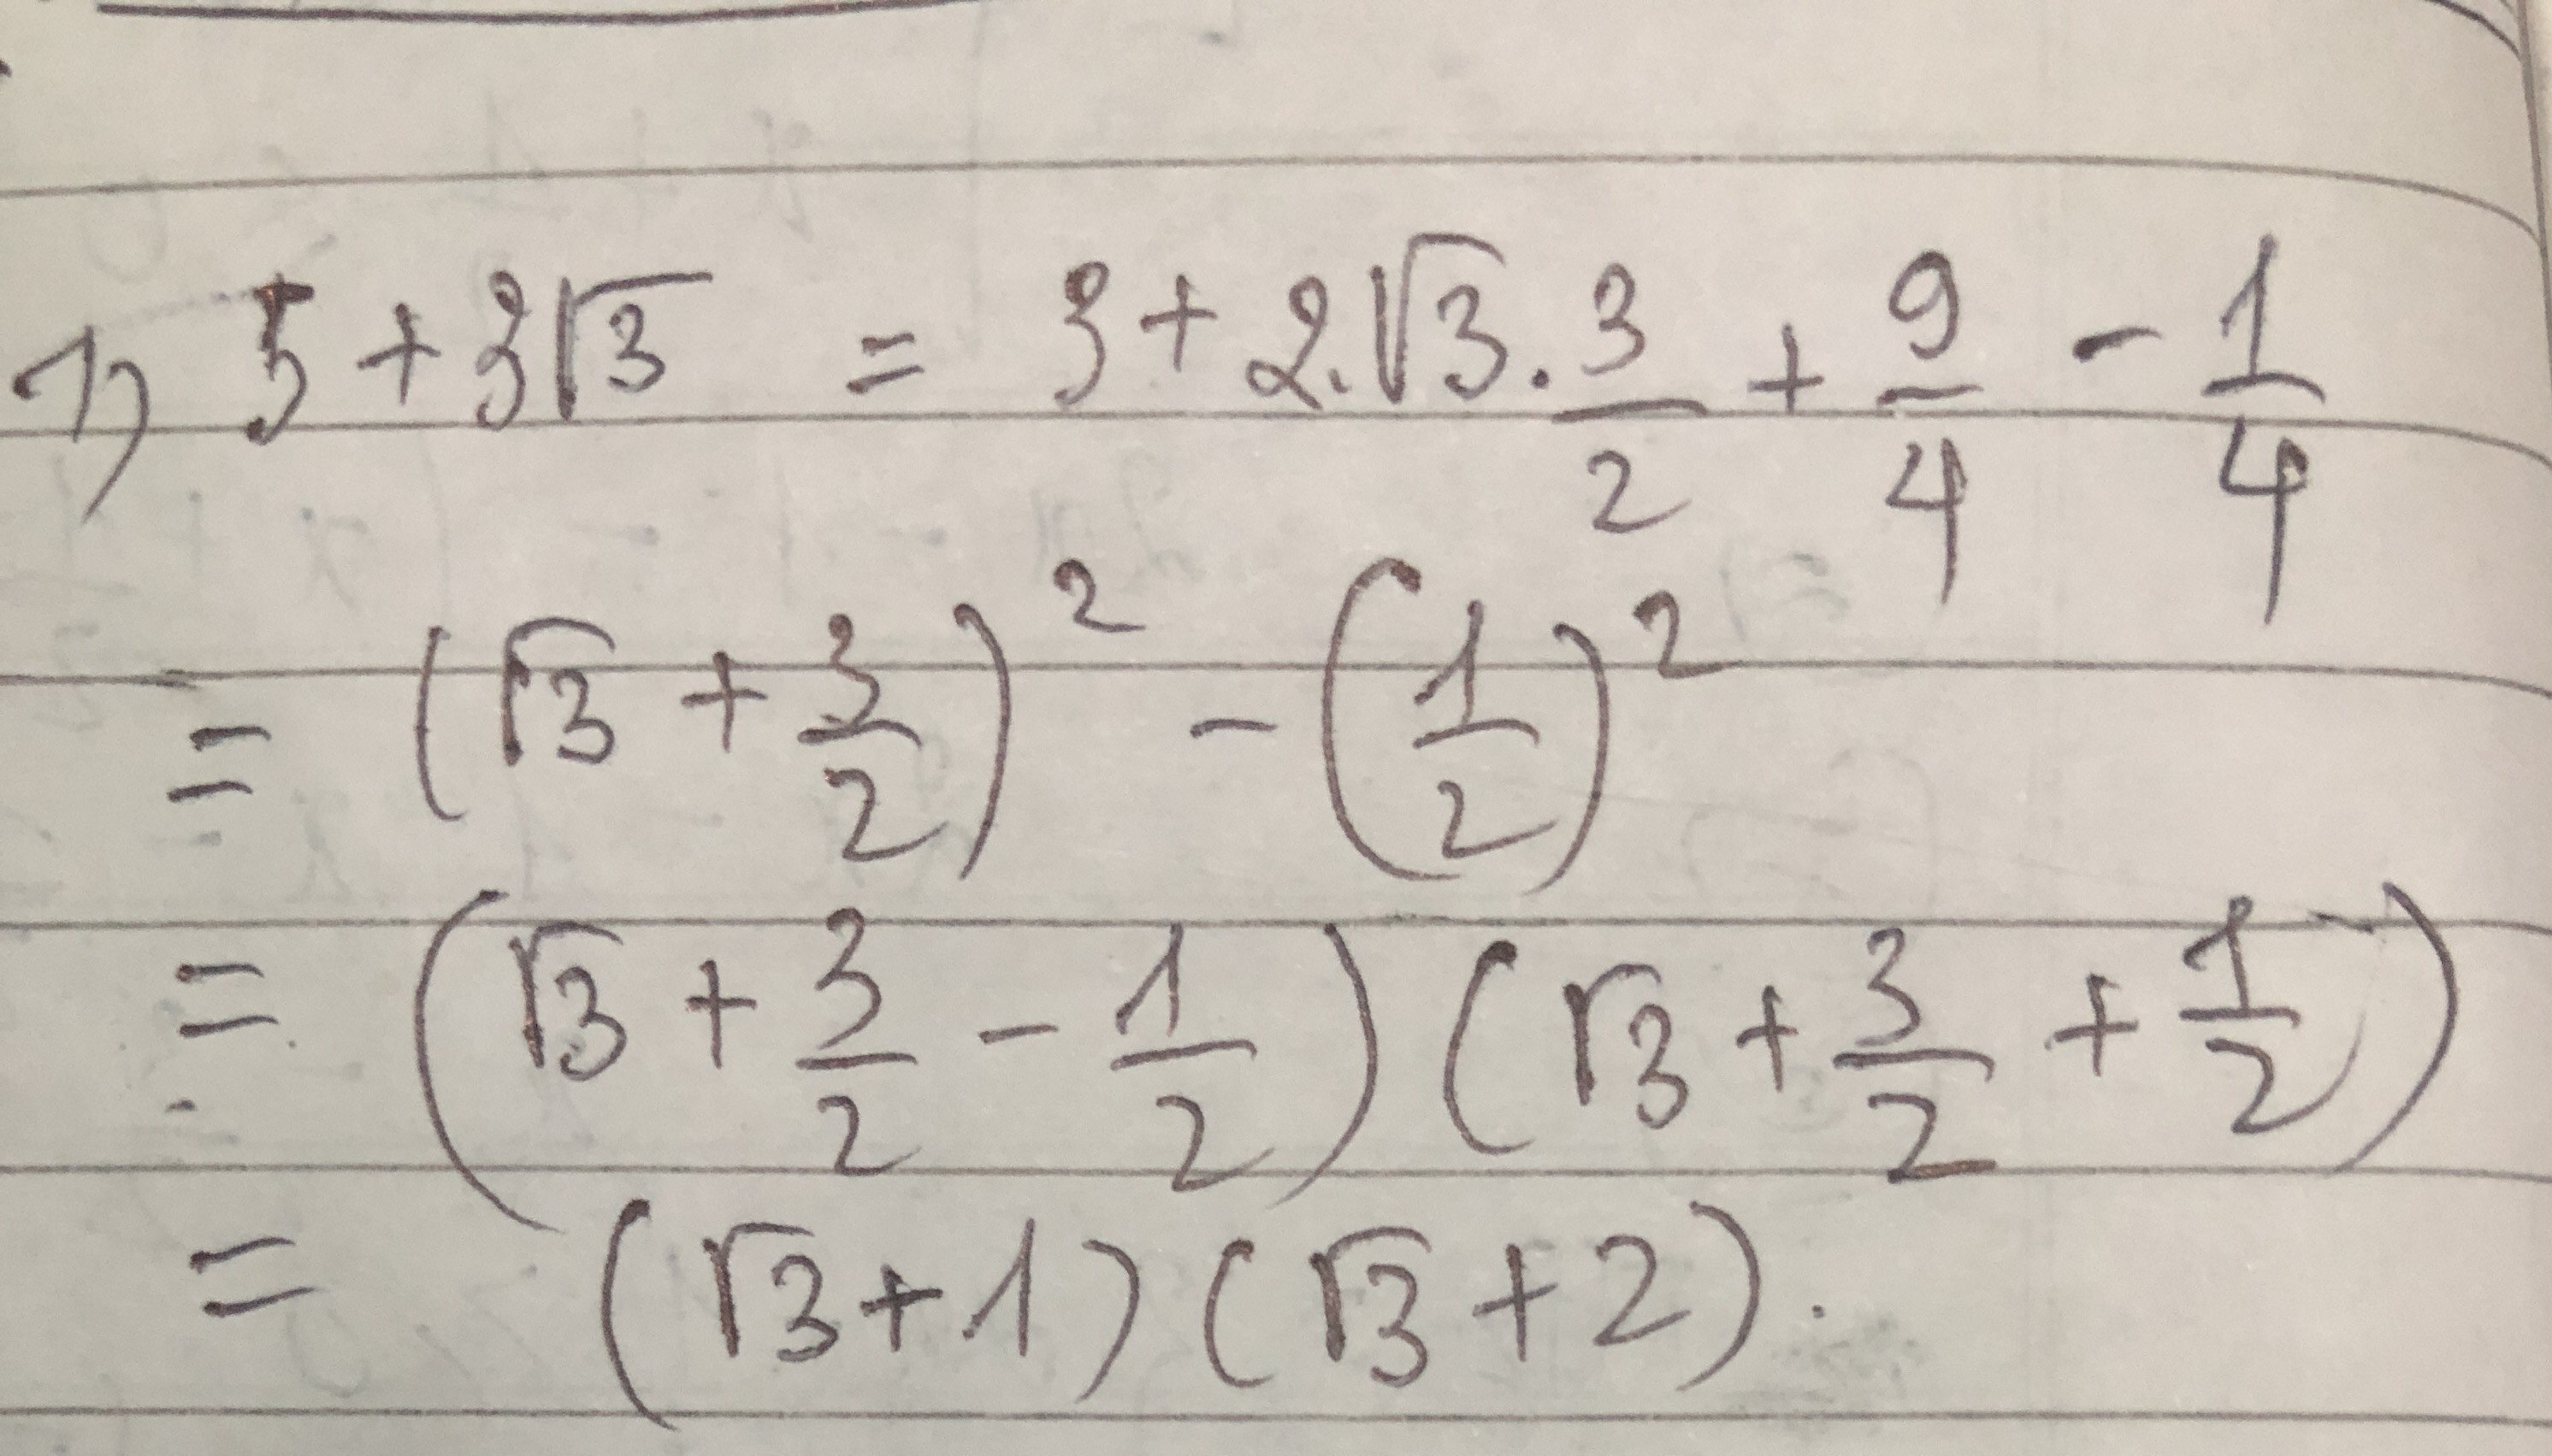 1) 5 + 3√3 = 3 + 2.√3.3/2 + 9/4 - 1/4
= (√3 + 3/2)² - (1/2)²
= (√3 + 3/2 - 1/2)(√3 + 3/2 + 1/2)
= (√3 + 1)(√3 + 2).